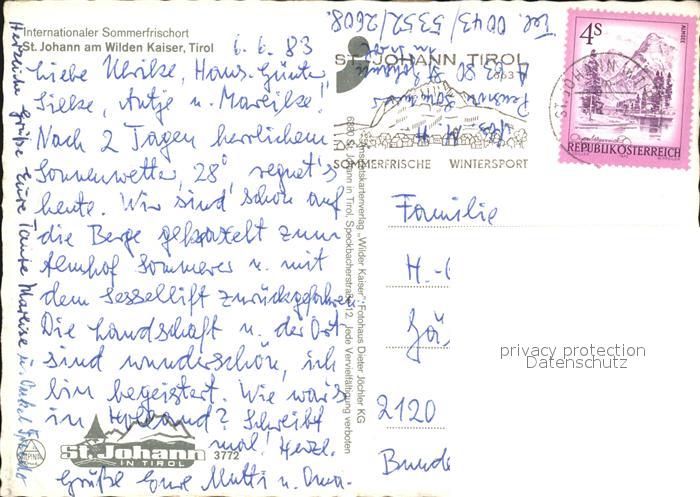 Internationaler Sommerfrischort
St. Johann am Wilden Kaiser, Tirol
6.6.83
Liebe Ulrike, Hans-Günter,
Silke, Antje u. Mareike!
Nach 2 Tagen herrlichem
Sonnenwetter, 28° regnet's
heute. Wir sind schon auf
die Berge gekraxelt zum
Almhof Sommerer u. mit
dem Sessellift zurückgefahren.
Die Landschaft u. der Ort
sind wunderschön, ich
bin begeistert. Wie war's
in Holland? Schreibt
mal! Herzl.
Grüße Eure Mutti u. Oma.
Herzliche Grüße Eure Tante Marlise u. Onkel
St. Johann
IN TIROL
3772
Tel. 0043/5352/2608
Pension
A 6380 St. Johann
in Tirol
ST. JOHANN TIROL
SOMMERFRISCHE WINTERSPORT
Ansichtskartenverlag „Wilder Kaiser", Fotohaus Dieter Jöchler KG
6380 St. Johann in Tirol, Speckbacherstraße 12, Jede Vervielfältigung verboten
4S
ALMSEE
REPUBLIK ÖSTERREICH
ST. JOHANN IN TIROL
Familie
H.-
2120
Bunde
privacy protection
Datenschutz